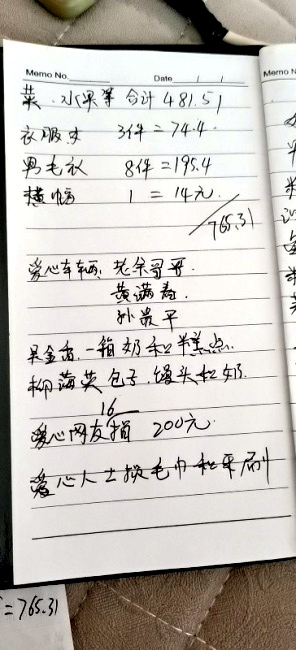 Memo No.
Date / /
Memo N
菜、水果等 合计 481.51
衣服 3件 = 74.4
男毛衣 8件 = 195.4
横幅 1 = 14元
765.31
爱心车辆: 老余哥哥.
黄满寿.
孙贵平
一箱奶和糕点.
柳海英 包子.馒头和奶.
16
爱心网友捐 200元
爱心人士捐毛巾和牙刷
=765.31